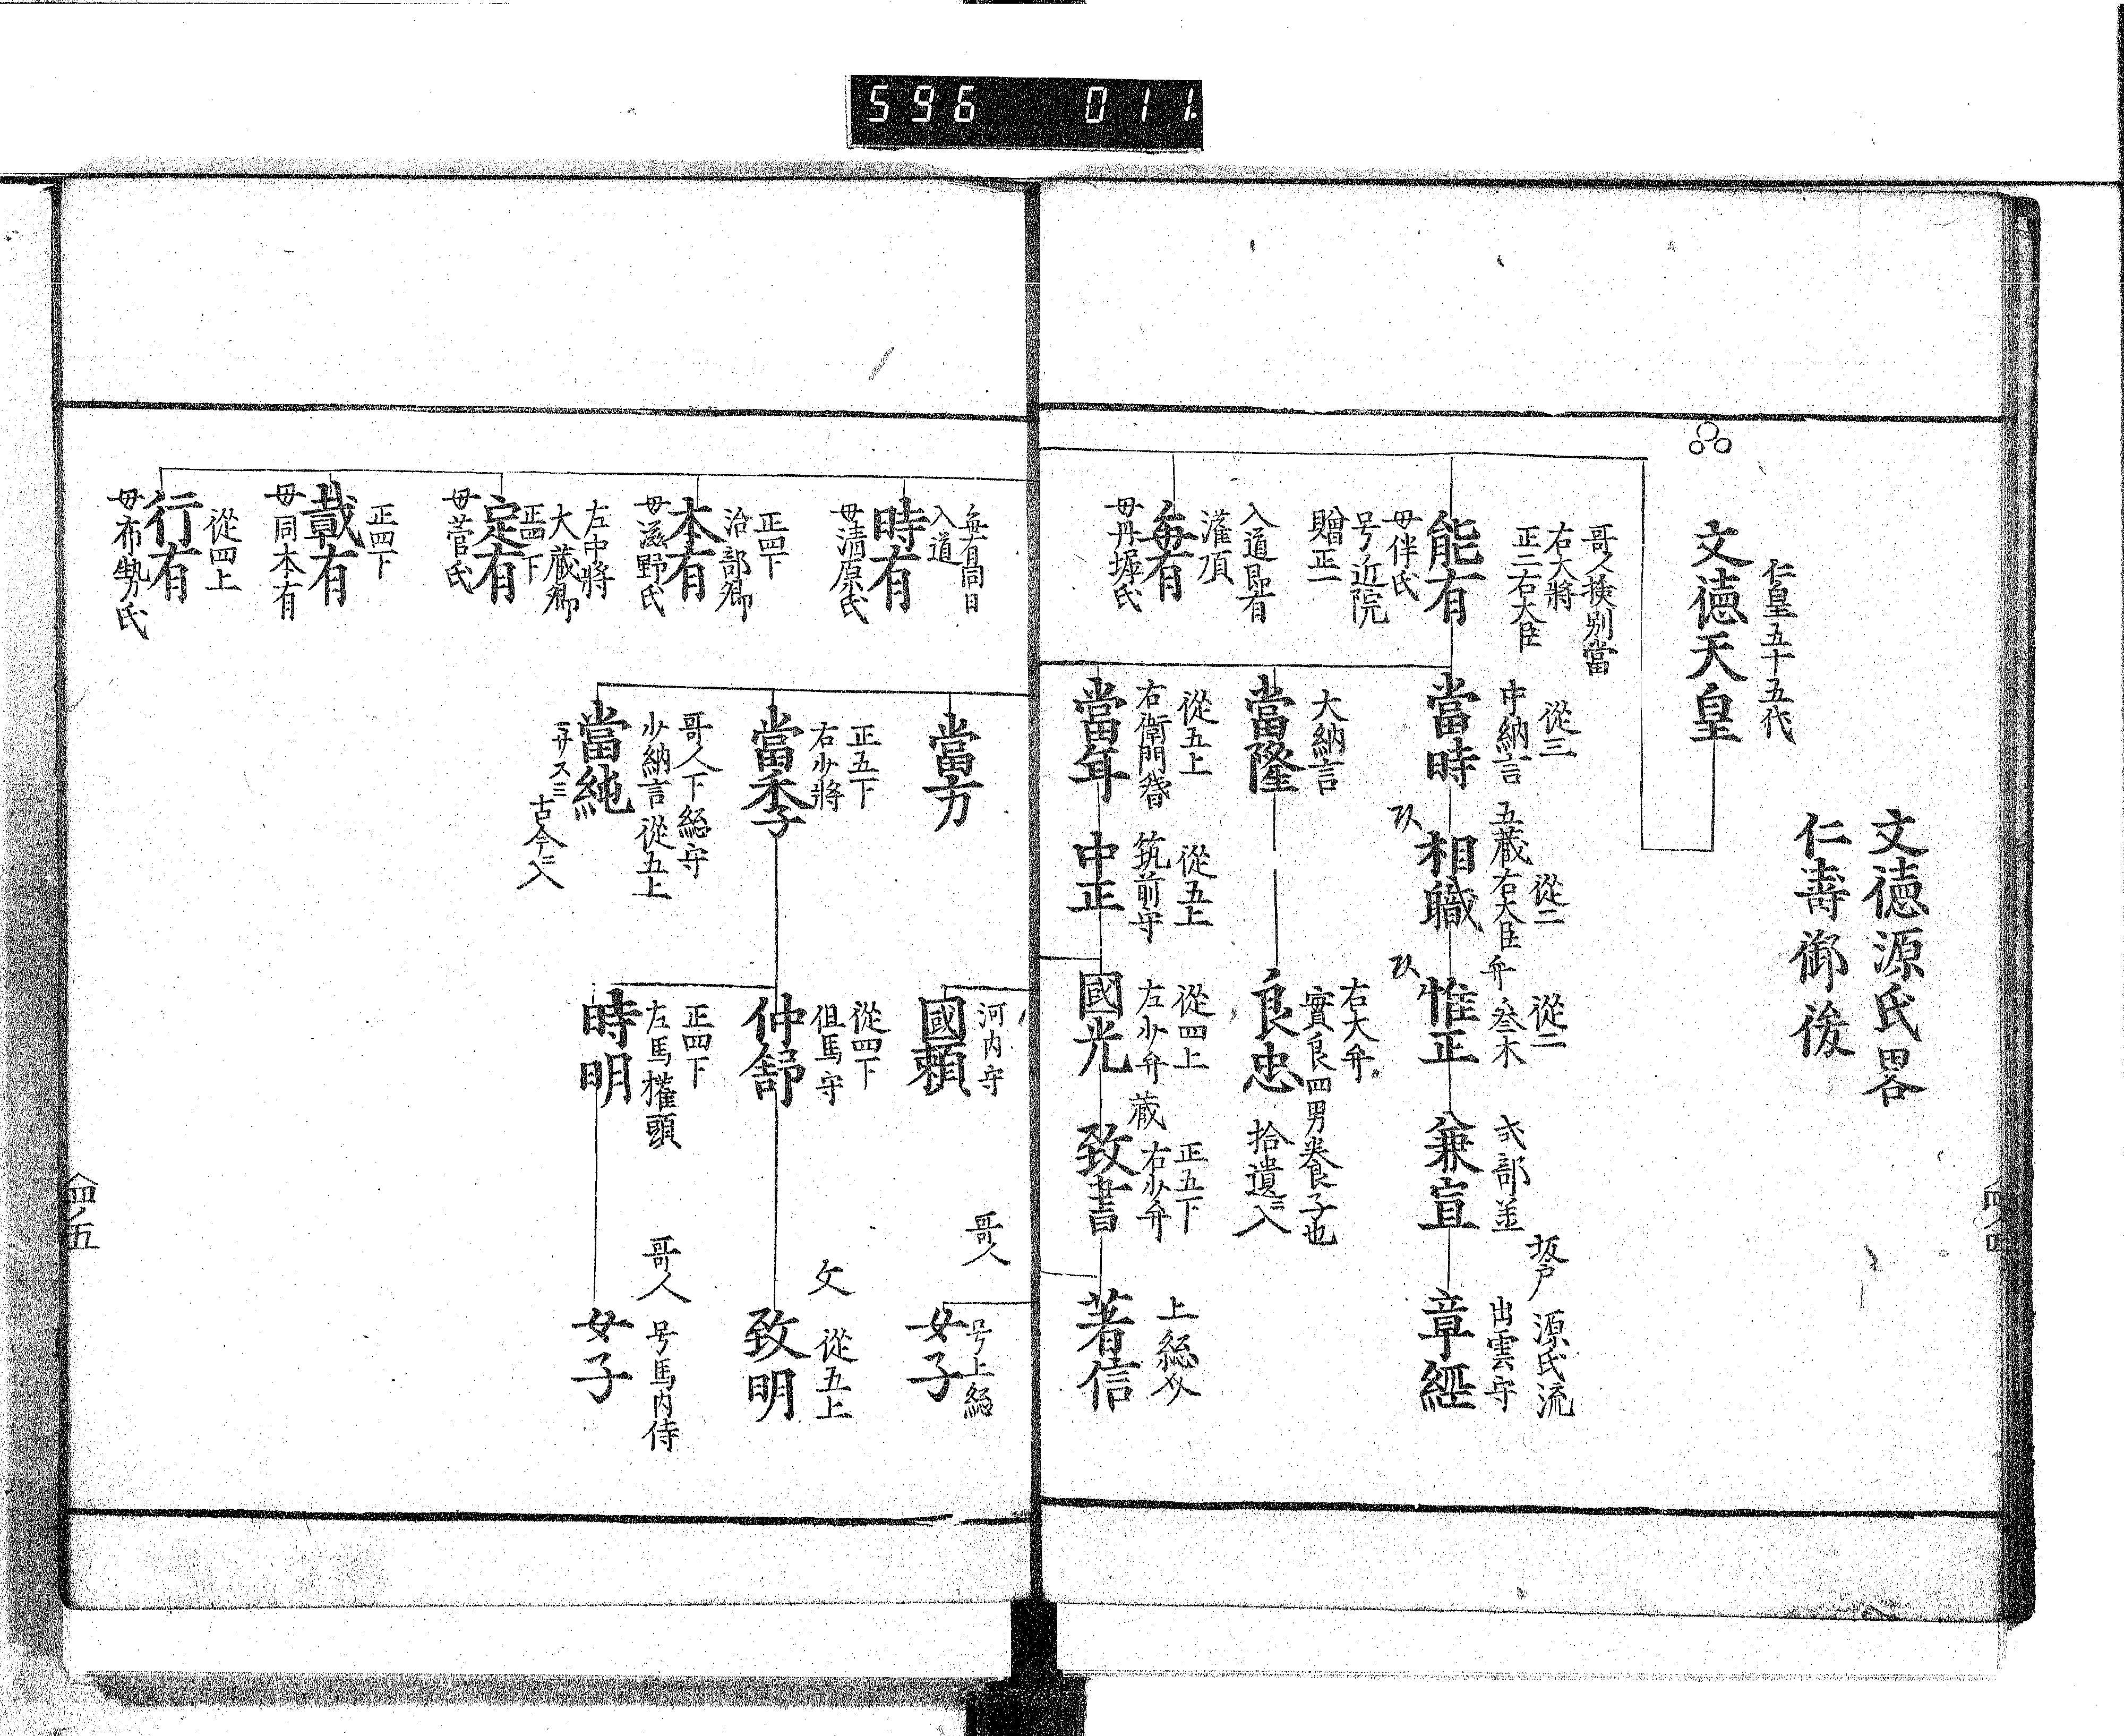 596 011.
文徳源氏畧
仁壽御後
仁皇五十五代
文徳天皇
哥人撿別當
右大將
正二右大臣
能有
母伴氏
号近院
贈正一
從三
中納言
當時
從二
五蔵右大臣弁
相職
從二
叅木
惟正
式部丞
兼宣
坂戸源氏流
出雲守
章經
大納言
當隆
右大弁
實良四男養子也
良忠
拾遺ニ入
入道
灌頂
毎有
母丹墀氏
從五上
右衛門督
當年
從五上
筑前守
中正
從四上
左少弁蔵
國光
正五下
右少弁
致書
上総介
著信
毎有同日
入道
時有
母清原氏
當方
河内守
國頼
哥人
号上総
女子
正四下
治部卿
本有
母滋野氏
正五下
右少將
當季
從四下
但馬守
仲舒
文從五上
致明
哥人下総守
少納言從五上
當純
古今ニ入
正四下
左馬權頭
時明
哥人号馬内侍
女子
左中將
大蔵卿
正四下
定有
母菅氏
正四下
載有
母同本有
從四上
行有
母布勢氏
四ノ五